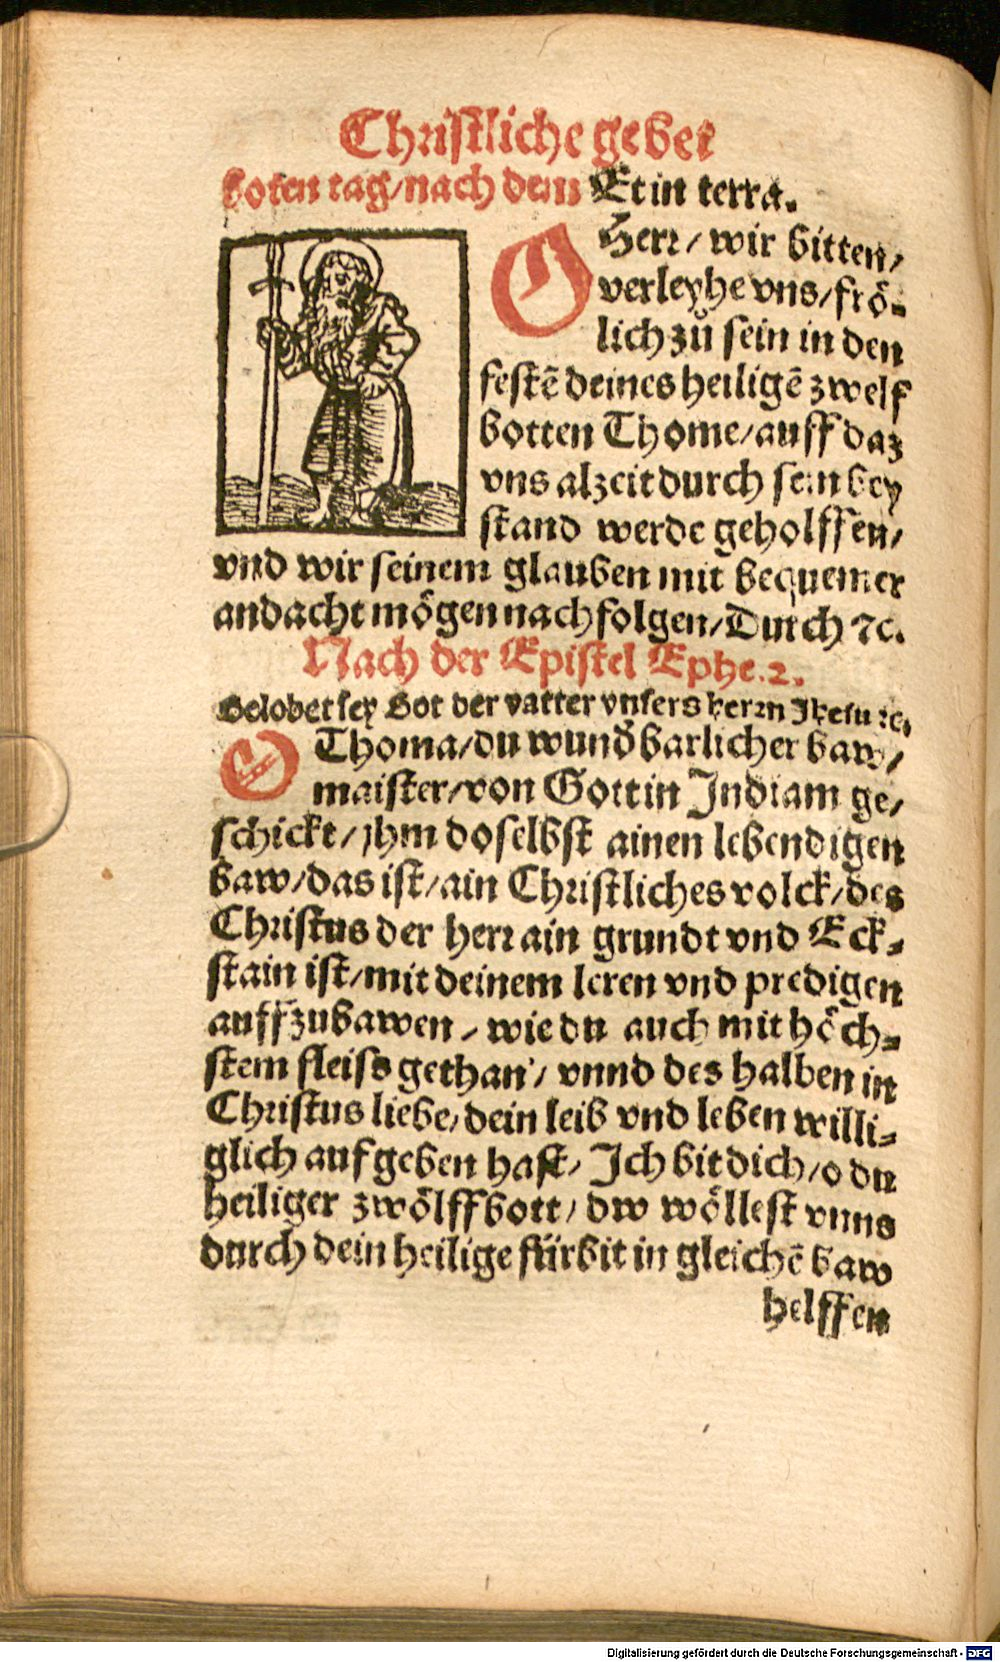 Christliche gebet
boten tag/nach dem Et in terra.
O Herr/ wir bitten/
verleyhe vns/frö-
lich zů sein in den
festē deines heiligē zwelf
botten Thome/auff daz
vns alzeit durch sein bey
stand werde geholffen/
vnd wir seinem glauben mit bequemer
andacht mögen nachfolgen/Durch ⁊c.
Nach der Epistel Ephe.2.
Gelobet sey Got der vatter vnsers herrn Jhesu ⁊c.
O Thoma/du wundẽbarlicher baw/
maister/von Gott in Jndiam ge/
schickt/jhm doselbst ainen lebendigen
baw/das ist/ain Christliches volck/des
Christus der herr ain grundt vnd Eck-
stain ist/mit deinem leren vnd predigen
auffzubawen/wie du auch mit höch-
stem fleiss gethan/ vnnd des halben in
Christus liebe/dein leib vnd leben willi-
glich aufgeben hast/ Jch bit dich/o du
heiliger zwölffbott/ dw wöllest vnns
durch dein heilige fürbit in gleichē baw
helffen
Digitalisierung gefördert durch die Deutsche Forschungsgemeinschaft - DFG